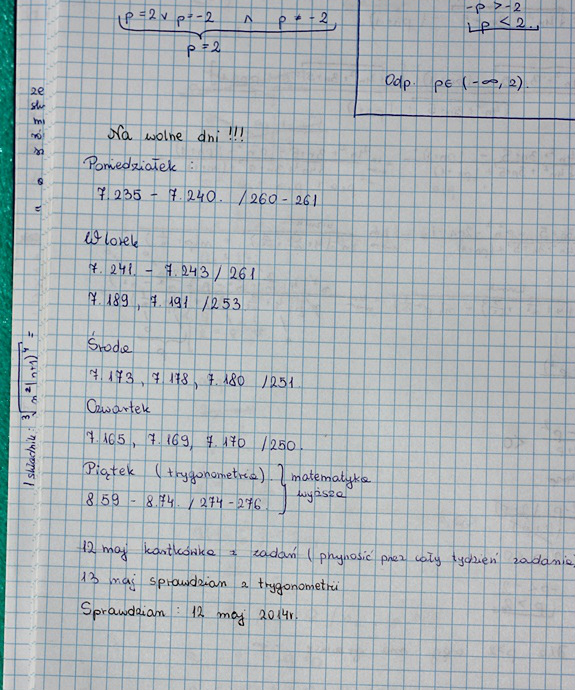 p = 2 ∨ p = -2 ∧ p ≠ -2
p = 2
-p > -2
p < 2.
Odp. p∈ (-∞, 2).
Na wolne dni !!!
Poniedziałek :
7.235 - 7.240. /260 - 261
Wtorek
7.241. - 7.243 / 261
7.189, 7.191 /253
Środa
7.173, 7.178, 7.180 /251
Czwartek
7.165, 7.169, 7.170 /250.
Piątek (trygonometria). } matematyka
8.59 - 8.74. / 274 - 276. wyższa
12 maj kartkówka z zadań ( przynosić przez cały tydzień zadania
13 maj sprawdzian z trygonometrii
Sprawdzian : 12 maj 2014r.